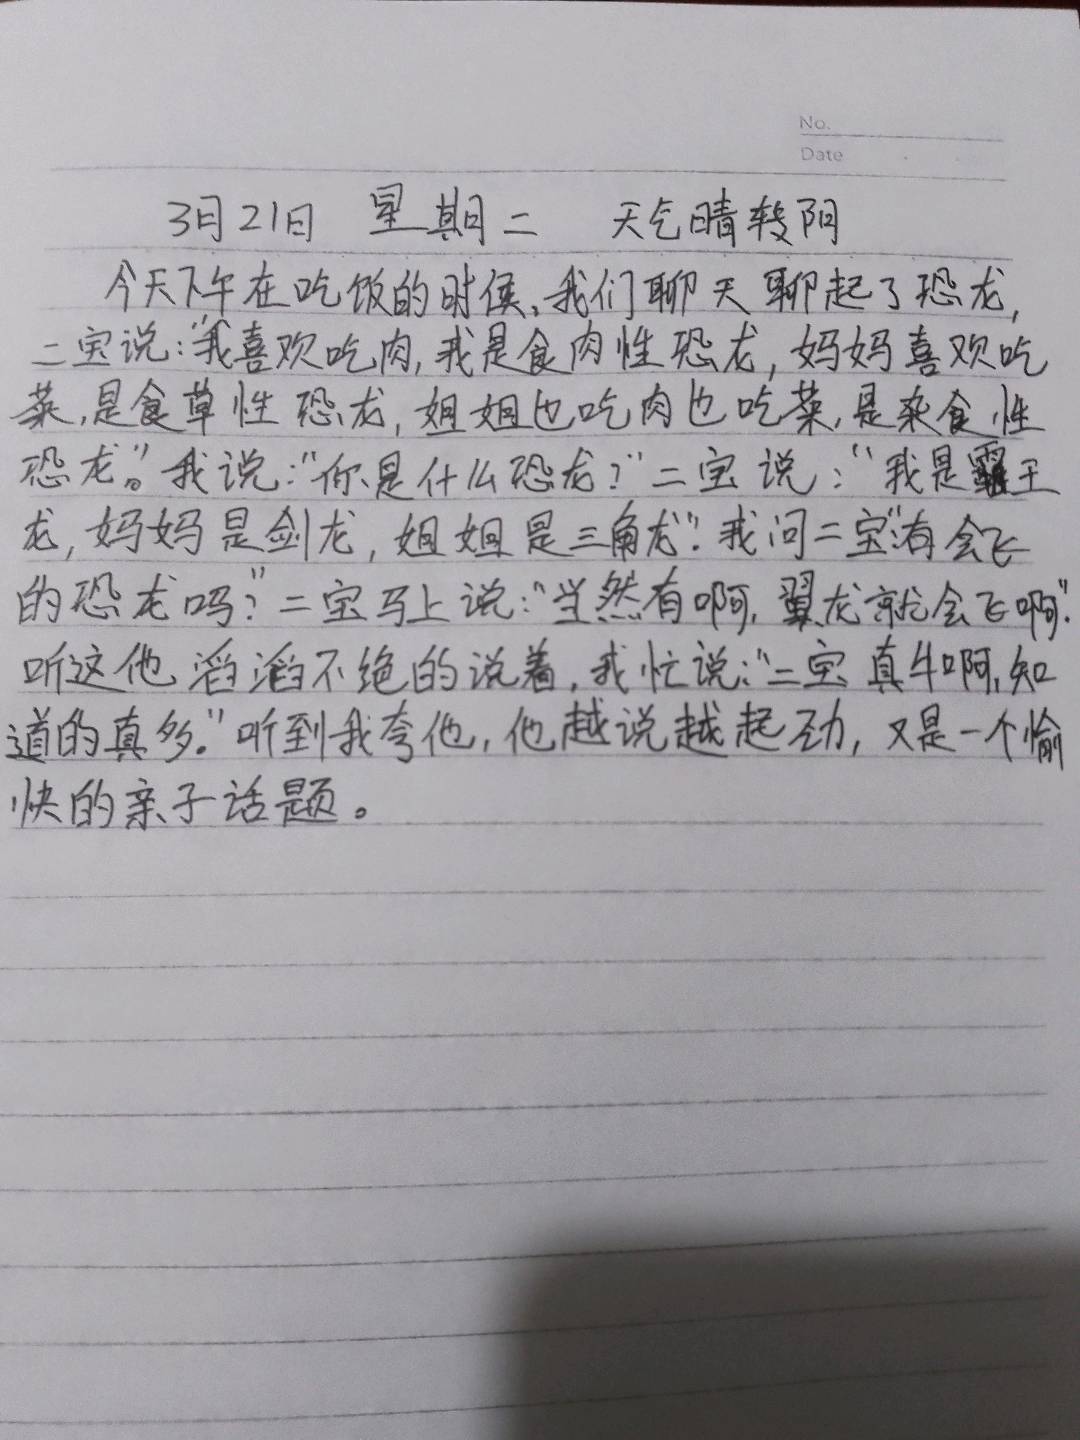 No.
Date
3月21日 星期二 天气晴转阴
今天下午在吃饭的时候、我们聊天聊起了恐龙,
二宝说:"我喜欢吃肉,我是食肉性恐龙,妈妈喜欢吃
菜,是食草性恐龙,姐姐也吃肉也吃菜,是杂食性
恐龙。"我说:"你是什么恐龙?"二宝说:"我是霸王
龙,妈妈是剑龙,姐姐是三角龙".我问二宝:"有会飞
的恐龙吗?"二宝马上说:"当然有啊,翼龙就会飞啊".
听这他滔滔不绝的说着,我忙说:"二宝真牛啊,知
道的真多."听到我夸他,他越说越起劲,又是一个愉
快的亲子话题。